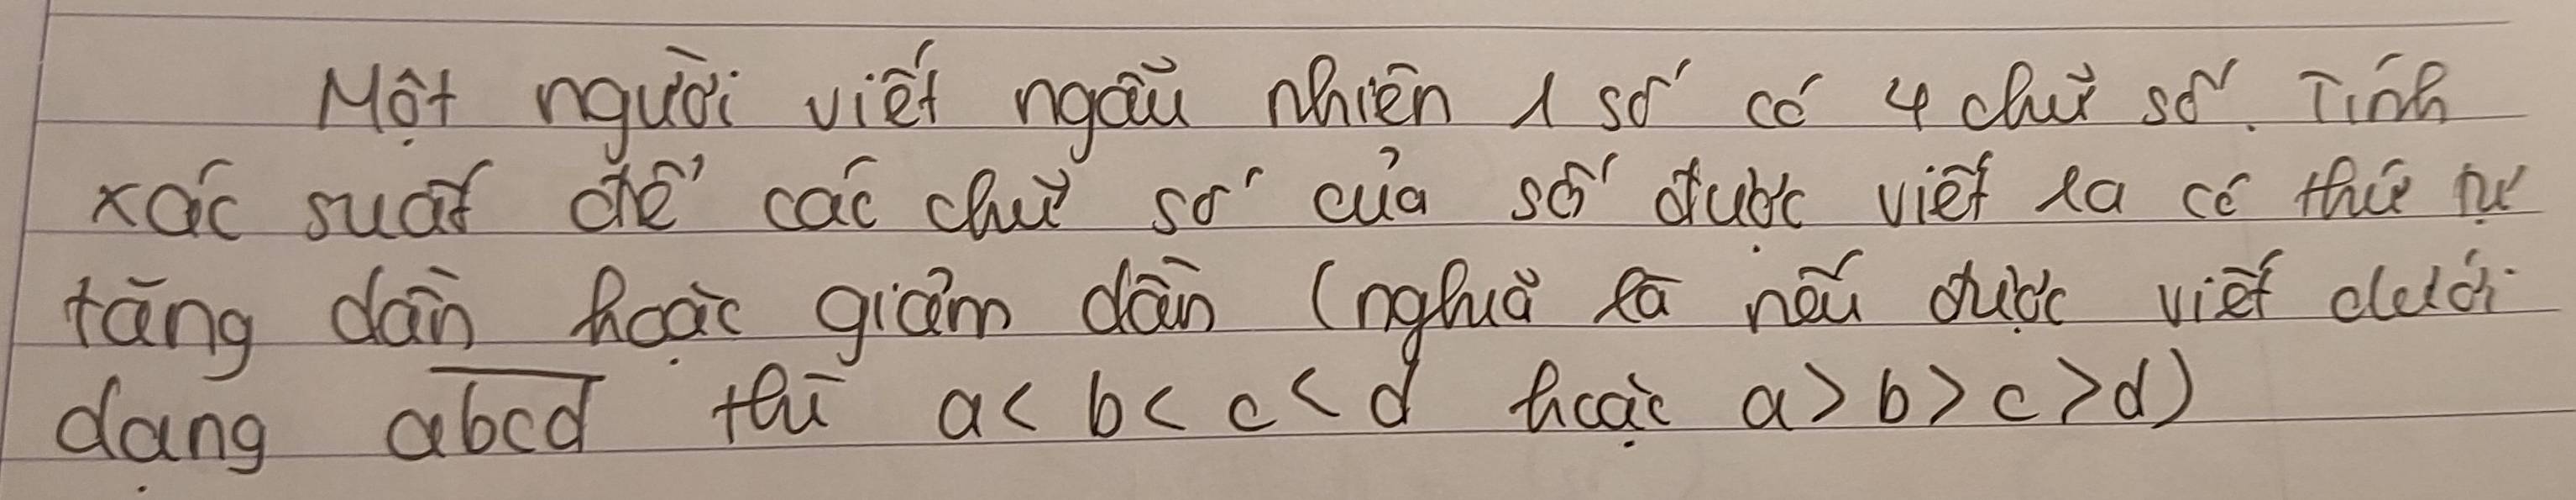 Một người viết ngẫu nhiên 1 số có 4 chữ số. Tính
xác suất để các chữ số của số được viết ra có thứ tự
tăng dần hoặc giảm dần (nghĩa là nếu được viết dưới
dạng abcd thì a < b < c < d hoặc a > b > c > d)